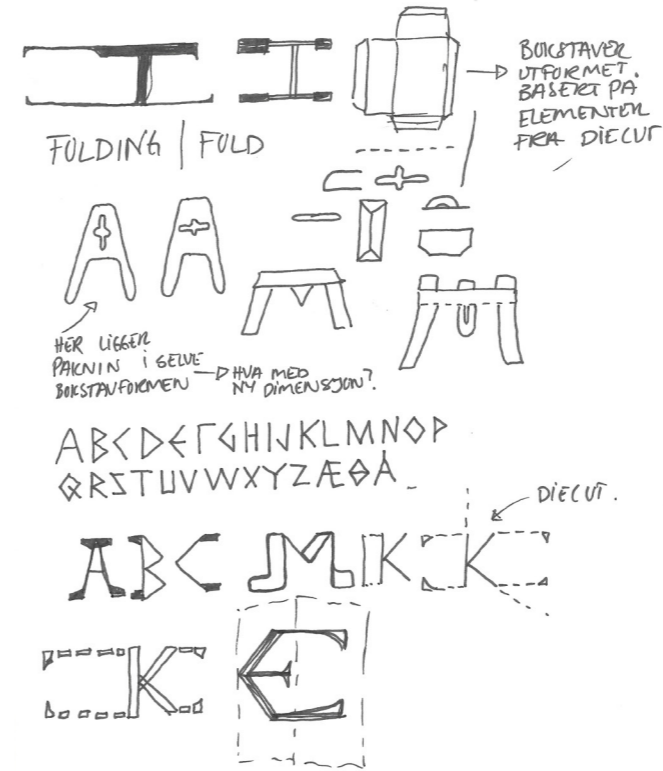 BOKSTAVER
UTFORMET.
BASERT PÅ
ELEMENTER
FRA DIECUT
FOLDING | FOLD
HER LIGGER
PAKNIN I SELVE
BOKSTAVFORMEN
HVA MED
NY DIMENSJON?
ABCDEFGHIJKLMNOP
QRSTUVWXYZÆØÅ
DIECUT.
ABC M K K
K E